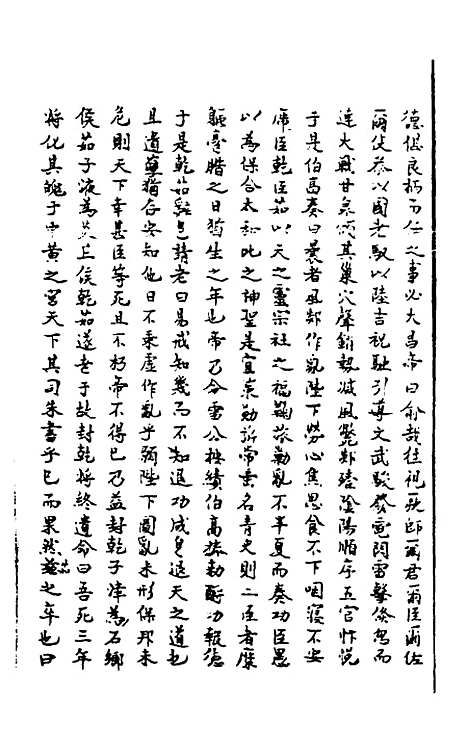 德俱良柄而任之事必大昌帝曰俞哉往祝融郎爾君爾臣爾佐
爾使恭以國老馭以陸吉祝駐引導文武駿發電閃雷擊倏忽而
達大戰甘泉傾其巢穴聲銷毅滅風鶩郊臻陰陽順序五官怍悅
于是伯馬奏曰曩者風郜作亂陛下勞心焦思食不下咽寢不安
席臣乾臣茹以天之靈宗社之福鞠旅勒亂不半夏而奏功臣愚
以為保合太和此之神聖是宜策勒旂常業名青史則二臣者麋
軀毫腊之日猶生之年也帝乃令雷公按績伯高旅勅酧功報德
于是乾茹谿邑請老曰易戒知幾而不知退功成身退天之道也
且遺孽猶存安知他日不乘虛作亂乎願陛下圖亂未形保邦未
危則天下幸甚臣等死且不朽帝不得已乃益封乾子津為石鄉
侯茹子液為炎丘侯乾茹遂老于故封乾將終遺命曰吾死三年
將化其魄于中黃之宮天下其司朱書乎已而果然茹之卒也曰